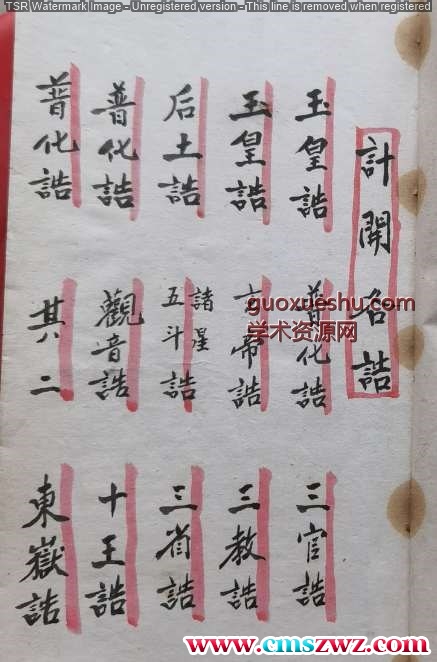 TSR Watermark Image - Unregistered version - This line is removed when registered
計開名誥
玉皇誥 普化誥 三官誥
玉皇誥 帝誥 三教誥
后土誥 諸星五斗誥 三省誥
普化誥 觀音誥 十王誥
普化誥 其二 東嶽誥
guoxueshu.com
学术资源网
www.cmszwz.com